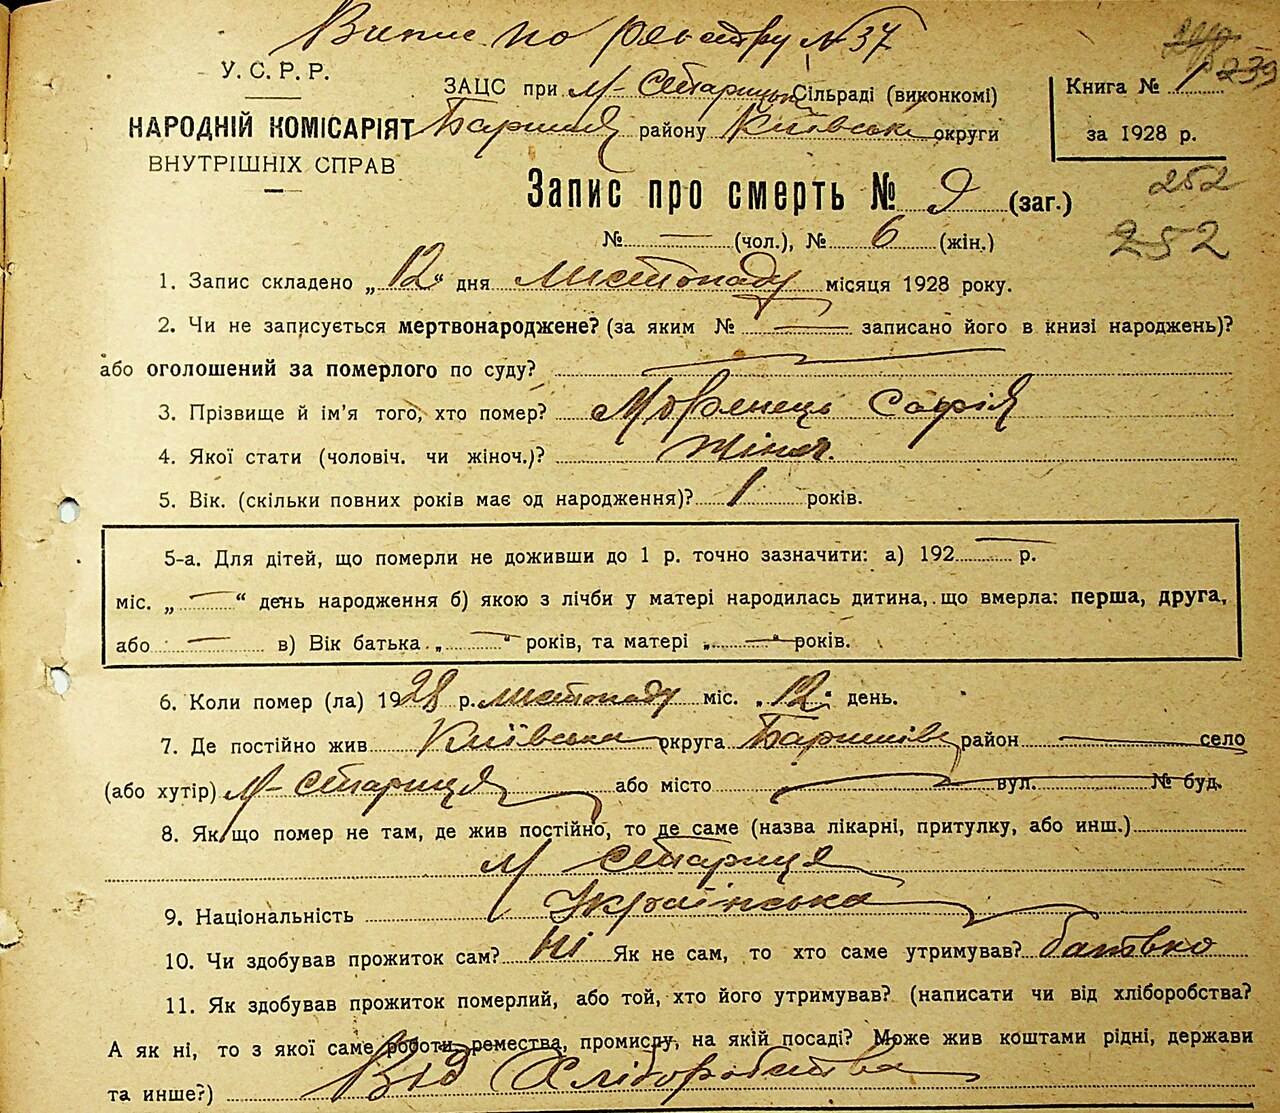 Випис по реєстру № 37
У. С. Р. Р.
НАРОДНІЙ КОМІСАРІЯТ
ВНУТРІШНІХ СПРАВ
ЗАЦС при М-Старицькій Сільраді (виконкомі)
району Київської округи
Книга № 1 239
за 1928 р.
252
252
Запис про смерть № 9 (заг.)
№ — (чол.), № 6 (жін.)
1. Запис складено „12“ дня листопаду місяця 1928 року.
2. Чи не записується мертвонароджене? (за яким № — записано його в книзі народжень)?
або оголошений за померлого по суду? —
3. Прізвище й ім'я того, хто помер? Софія
4. Якої стати (чоловіч. чи жіноч.)? Жіноч.
5. Вік. (скільки повних років має од народження)? 1 років.
5-а. Для дітей, що померли не доживши до 1 р. точно зазначити: а) 192 — р.
міс. „ — “ день народження б) якою з лічби у матері народилась дитина, що вмерла: перша, друга,
або — в) Вік батька „ — “ років, та матері „ — “ років.
6. Коли помер (ла) 1928 р. листопаду міс. „12“ день.
7. Де постійно жив Київська округа Баришів район — село
(або хутір) М-Стариця або місто — вул. — № буд.
8. Якщо помер не там, де жив постійно, то де саме (назва лікарні, притулку, або инш.)
М Стариця
9. Національність Українська
10. Чи здобував прожиток сам? Ні Як не сам, то хто саме утримував? батько
11. Як здобував прожиток померлий, або той, хто його утримував? (написати чи від хліборобства?
А як ні, то з якої саме роботи, ремества, промислу, на якій посаді? Може жив коштами рідні, держави
та инше?) Від Хліборобства